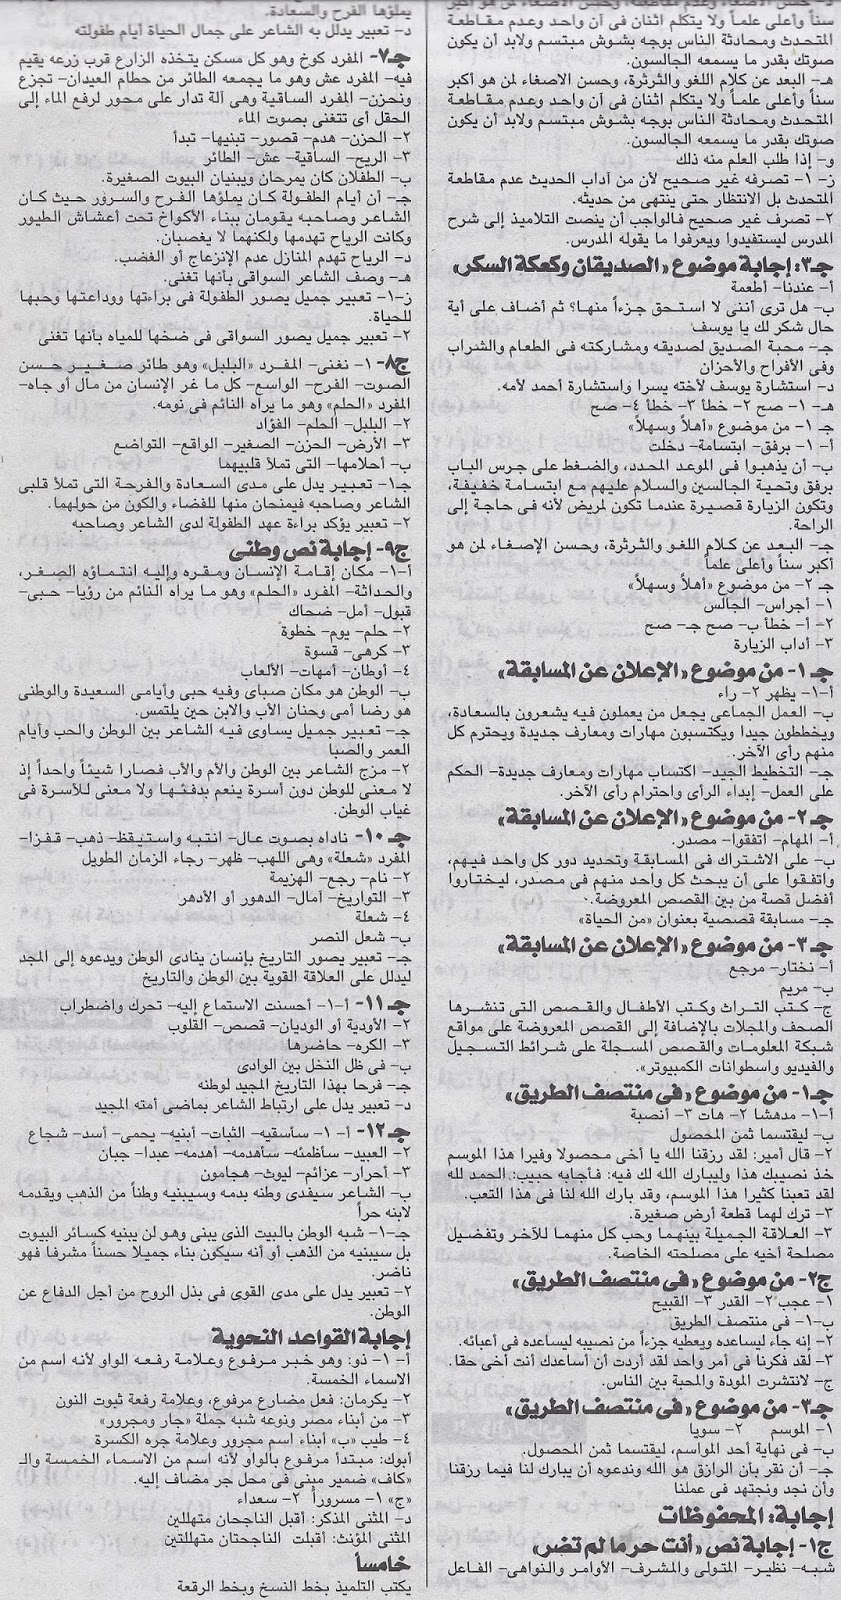 د- حسن الإصغاء وعدم مقاطعته، وحسن الإصغاء لمن هو أكبر
سناً وأعلى علماً ولا يتكلم اثنان فى آن واحد وعدم مقاطعة
المتحدث ومحادثة الناس بوجه بشوش مبتسم ولابد أن يكون
صوتك بقدر ما يسمعه الجالسون.
هـ- البعد عن كلام اللغو والثرثرة، وحسن الاصغاء لمن هو أكبر
سناً وأعلى علماً ولا يتكلم اثنان فى أن واحد وعدم مقاطعة
المتحدث ومحادثة الناس بوجه بشوش مبتسم ولابد أن يكون
صوتك بقدر ما يسمعه الجالسون.
و- إذا طلب العلم منه ذلك
ز- ١- تصرفه غير صحيح لأن من آداب الحديث عدم مقاطعة
المتحدث بل الانتظار حتى ينتهى من حديثه.
٢- تصرف غير صحيح فالواجب أن ينصت التلاميذ إلى شرح
المدرس ليستفيدوا ويعرفوا ما يقوله المدرس.
جـ٣: إجابة موضوع «الصديقان وكعكة السكر»
أ- عندنا- أطعمة
ب- هل ترى أننى لا استحق جزءاً منها؟ ثم أضاف على أية
حال شكر لك يا يوسف
جـ- محبة الصديق لصديقه ومشاركته فى الطعام والشراب
وفى الأفراح والأحزان
د- استشارة يوسف لأخته يسرا واستشارة أحمد لأمه.
هـ- ١- صح ٢- خطأ ٣- خطأ ٤- صح
جـ ١- من موضوع «أهلاً وسهلاً»
أ- ١- برفق- ابتسامة- دخلت
ب- أن يذهبوا فى الموعد المحدد، والضغط على جرس الباب
برفق وتحية الجالسين والسلام عليهم مع ابتسامة خفيفة،
وتكون الزيارة قصيرة عندما تكون لمريض لأنه فى حاجة إلى
الراحة.
جـ- البعد عن كلام اللغو والثرثرة، وحسن الإصغاء لمن هو
أكبر سناً وأعلى علماً
جـ ٢- من موضوع «أهلاً وسهلاً»
١- أجراس- الجالس
٢- أ- خطأ ب- صح جـ- صح
٣- أداب الزيارة
جـ ١- من موضوع «الإعلان عن المسابقة»
أ-١- يظهر ٢- راء
ب- العمل الجماعى يجعل من يعملون فيه يشعرون بالسعادة،
ويخططون جيدا ويكتسبون مهارات ومعارف جديدة ويحترم كل
منهم رأى الآخر.
جـ- التخطيط الجيد- اكتساب مهارات ومعارف جديدة- الحكم
على العمل- إبداء الرأى واحترام رأى الآخر.
جـ ٢- من موضوع «الإعلان عن المسابقة»
أ- المهام- اتفقوا- مصدر.
ب- على الاشتراك فى المسابقة وتحديد دور كل واحد فيهم،
واتفقوا على أن يبحث كل واحد منهم فى مصدر، ليختاروا
أفضل قصة من بين القصص المعروضة.
جـ- مسابقة قصصية بعنوان «من الحياة»
جـ ٣- من موضوع «الإعلان عن المسابقة»
أ- نختار- مرجع
ب- مريم
ج- كتب التراث وكتب الأطفال والقصص التى تنشرها
الصحف والمجلات بالإضافة إلى القصص المعروضة على مواقع
شبكة المعلومات والقصص المسجلة على شرائط التسجيل
والفيديو واسطوانات الكمبيوتر».
جـ١- من موضوع «فى منتصف الطريق»
أ-١- مدهشا ٢- هات ٣- أنصبة
ب- ليقتسما ثمن المحصول
٢- قال أمير: لقد رزقنا الله يا أخى محصولا وفيرا هذا الموسم
خذ نصيبك هذا وليبارك الله لك فيه: فأجابه حبيب: الحمد لله
لقد تعبنا كثيرا هذا الموسم، وقد بارك الله لنا فى هذا التعب.
٣- ترك لهما قطعة أرض صغيرة.
٣- العلاقة الجميلة بينهما وحب كل منهما للآخر وتفضيل
مصلحة أخيه على مصلحته الخاصة.
ج٢- من موضوع «فى منتصف الطريق»
١- عجب ٢- القدر ٣- القبيح
ب-١- فى منتصف الطريق
٢- إنه جاء ليساعده ويعطيه جزءاً من نصيبه ليساعده فى أعبائه.
٣- لقد فكرنا فى أمر واحد لقد أردت أن أساعدك أنت أخى حقا.
ج- لانتشرت المودة والمحبة بين الناس.
جـ٣- من موضوع «فى منتصف الطريق»
١- الموسم ٢- سويا
ب- فى نهاية أحد المواسم، ليقتسما ثمن المحصول.
جـ- أن نقر بأن الرازق هو الله وندعوه أن يبارك لنا فيما رزقنا
وأن نجد ونجتهد فى عملنا
إجابة: المحفوظات
ج١- إجابة نص «أنت حر ما لم تضر»
شبه- نظير- المتولى والمشرف- الأوامر والنواهى- الفاعل
يملؤها الفرح والسعادة.
د- تعبير يدلل به الشاعر على جمال الحياة أيام طفولته
جـ٧- المفرد كوخ وهو كل مسكن يتخذه الزارع قرب زرعه يقيم
فيه- المفرد عش وهو ما يجمعه الطائر من حطام العيدان- تجزع
ونحزن- المفرد الساقية وهى آلة تدار على محور لرفع الماء إلى
الحقل أى تتغنى بصوت الماء
٢- الحزن- هدم- قصور- تبنيها- تبدأ
٣- الريح- الساقية- عش- الطائر
ب- الطفلان كان يمرحان ويبنيان البيوت الصغيرة.
جـ- أن أيام الطفولة كان يملؤها الفرح والسرور حيث كان
الشاعر وصاحبه يقومان ببناء الأكواخ تحت أعشاش الطيور
وكانت الرياح تهدمها ولكنهما لا يغصبان.
د- الرياح تهدم المنازل عدم الإنزعاج أو الغضب.
هـ- وصف الشاعر السواقى بأنها تغنى.
ز-١- تعبير جميل يصور الطفولة فى براءتها ووداعتها وحبها
للحياة.
٢- تعبير جميل يصور السواقى فى ضخها للمياه بأنها تغنى
ج٨- ١- نغنى- المفرد «البلبل» وهو طائر صغير حسن
الصوت- الفرح- الواسع- كل ما غر الإنسان من مال أو جاه-
المفرد «الحلم» وهو ما يراه النائم فى نومه.
٢- البلبل- الحلم- الفؤاد
٣- الأرض- الحزن- الصغير- الواقع- التواضع
ب- أحلامها- التى تملأ قلبيهما
جـ١- تعبير يدل على مدى السعادة والفرحة التى تملأ قلبى
الشاعر وصاحبه فيمنحان منها للفضاء والكون من حولهما.
٢- تعبير يؤكد براءة عهد الطفولة لدى الشاعر وصاحبه
ج٩- إجابة نص وطنى
أ-١- مكان إقامة الإنسان ومقره وإليه انتماؤه الصغر،
والحداثة- المفرد «الحلم» وهو ما يراه النائم من رؤيا- حبى-
قبول- أمل- ضحاك
٢- حلم- يوم- خطوة
٣- كرهى- قسوة
٤- أوطان- أمهات- الألعاب
ب- الوطن هو مكان صباى وفيه حبى وأيامى السعيدة والوطنى
هو رضا أمى وحنان الأب والابن حين يلتمس.
جـ- تعبير جميل يساوى فيه الشاعر بين الوطن والحب وأيام
العمر والصبا
٢- مزج الشاعر بين الوطن والأم والأب فصارا شيئاً واحداً إذ
لا معنى للوطن دون أسرة ينعم بدفئها ولا معنى للأسرة فى
غياب الوطن.
جـ ١٠- ناداه بصوت عال- انتبه واستيقظ- ذهب- قفزا-
المفرد «شعلة» وهى اللهب- ظهر- رجاء الزمان الطويل
٢- نام- رجع- الهزيمة
٣- التواريخ- آمال- الدهور أو الأدهر
٤- شعلة
ب- شعل النصر
جـ- تعبير يصور التاريخ بإنسان ينادى الوطن ويدعوه إلى المجد
ليدلل على العلاقة القوية بين الوطن والتاريخ
جـ ١١- أ-١- أحسنت الاستماع إليه- تحرك واضطراب
٢- الأودية أو الوديان- قصص- القلوب
٣- الكره- حاضرها
ب- فى ظل النخل بين الوادى
جـ- فرحا بهذا التاريخ المجيد لوطنه
د- تعبير يدل على ارتباط الشاعر بماضى أمته المجيد
جـ ١٢- أ- ١- سأسقيه- الثبات- أبنيه- يحمى- أسد- شجاع
٢- العبيد- سأظمئه- سأهدمه- أهدمه- عبدا- جبان
٣- أحرار- عزائم- ليوث- هجامون
ب- الشاعر سيفدى وطنه بدمه وسيبنيه وطناً من الذهب ويقدمه
لابنه حراً
جـ-١- شبه الوطن بالبيت الذى يبنى وهو لن يبنيه كسائر البيوت
بل سيبنيه من الذهب أو أنه سيكون بناء جميلا حسناً مشرفا فهو
ناضر.
٢- تعبير يدل على مدى القوى فى بذل الروح من أجل الدفاع عن
الوطن.
إجابة القواعد النحوية
أ- ١- ذو: وهو خبر مرفوع وعلامة رفعه الواو لأنه اسم من
الاسماء الخمسة.
٢- يكرمان: فعل مضارع مرفوع، وعلامة رفعة ثبوت النون
٣- من أبناء مصر ونوعه شبه جملة «جار ومجرور»
٤- طيب «ب» أبناء اسم مجرور وعلامة جره الكسرة
أبوك: مبتدأ مرفوع بالواو لأنه اسم من الاسماء الخمسة والـ
«كاف» ضمير مبنى فى محل جر مضاف إليه.
«ج» ١- مسروراً ٢- سعداء
د- المثنى المذكر: أقبل الناجحان متهللين
المثنى المؤنث: أقبلت الناجحتان متهللتين
خامساً
يكتب التلميذ بخط النسخ وبخط الرقعة